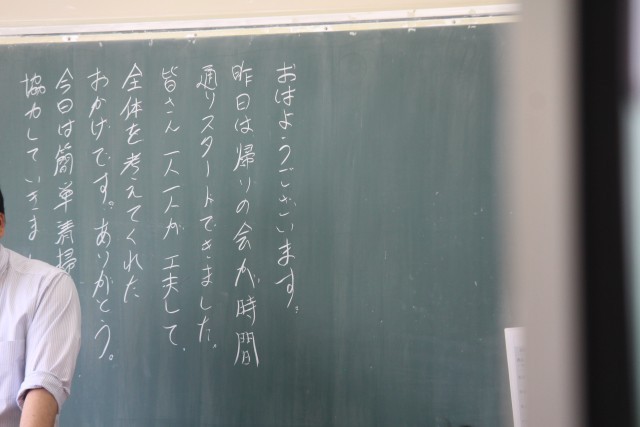 おはようございます。
昨日は帰りの会が時間
通りスタートできました。
皆さん一人一人が工夫して、
全体を考えてくれた
おかげです。ありがとう。
今日は簡単清掃
協力していきまし